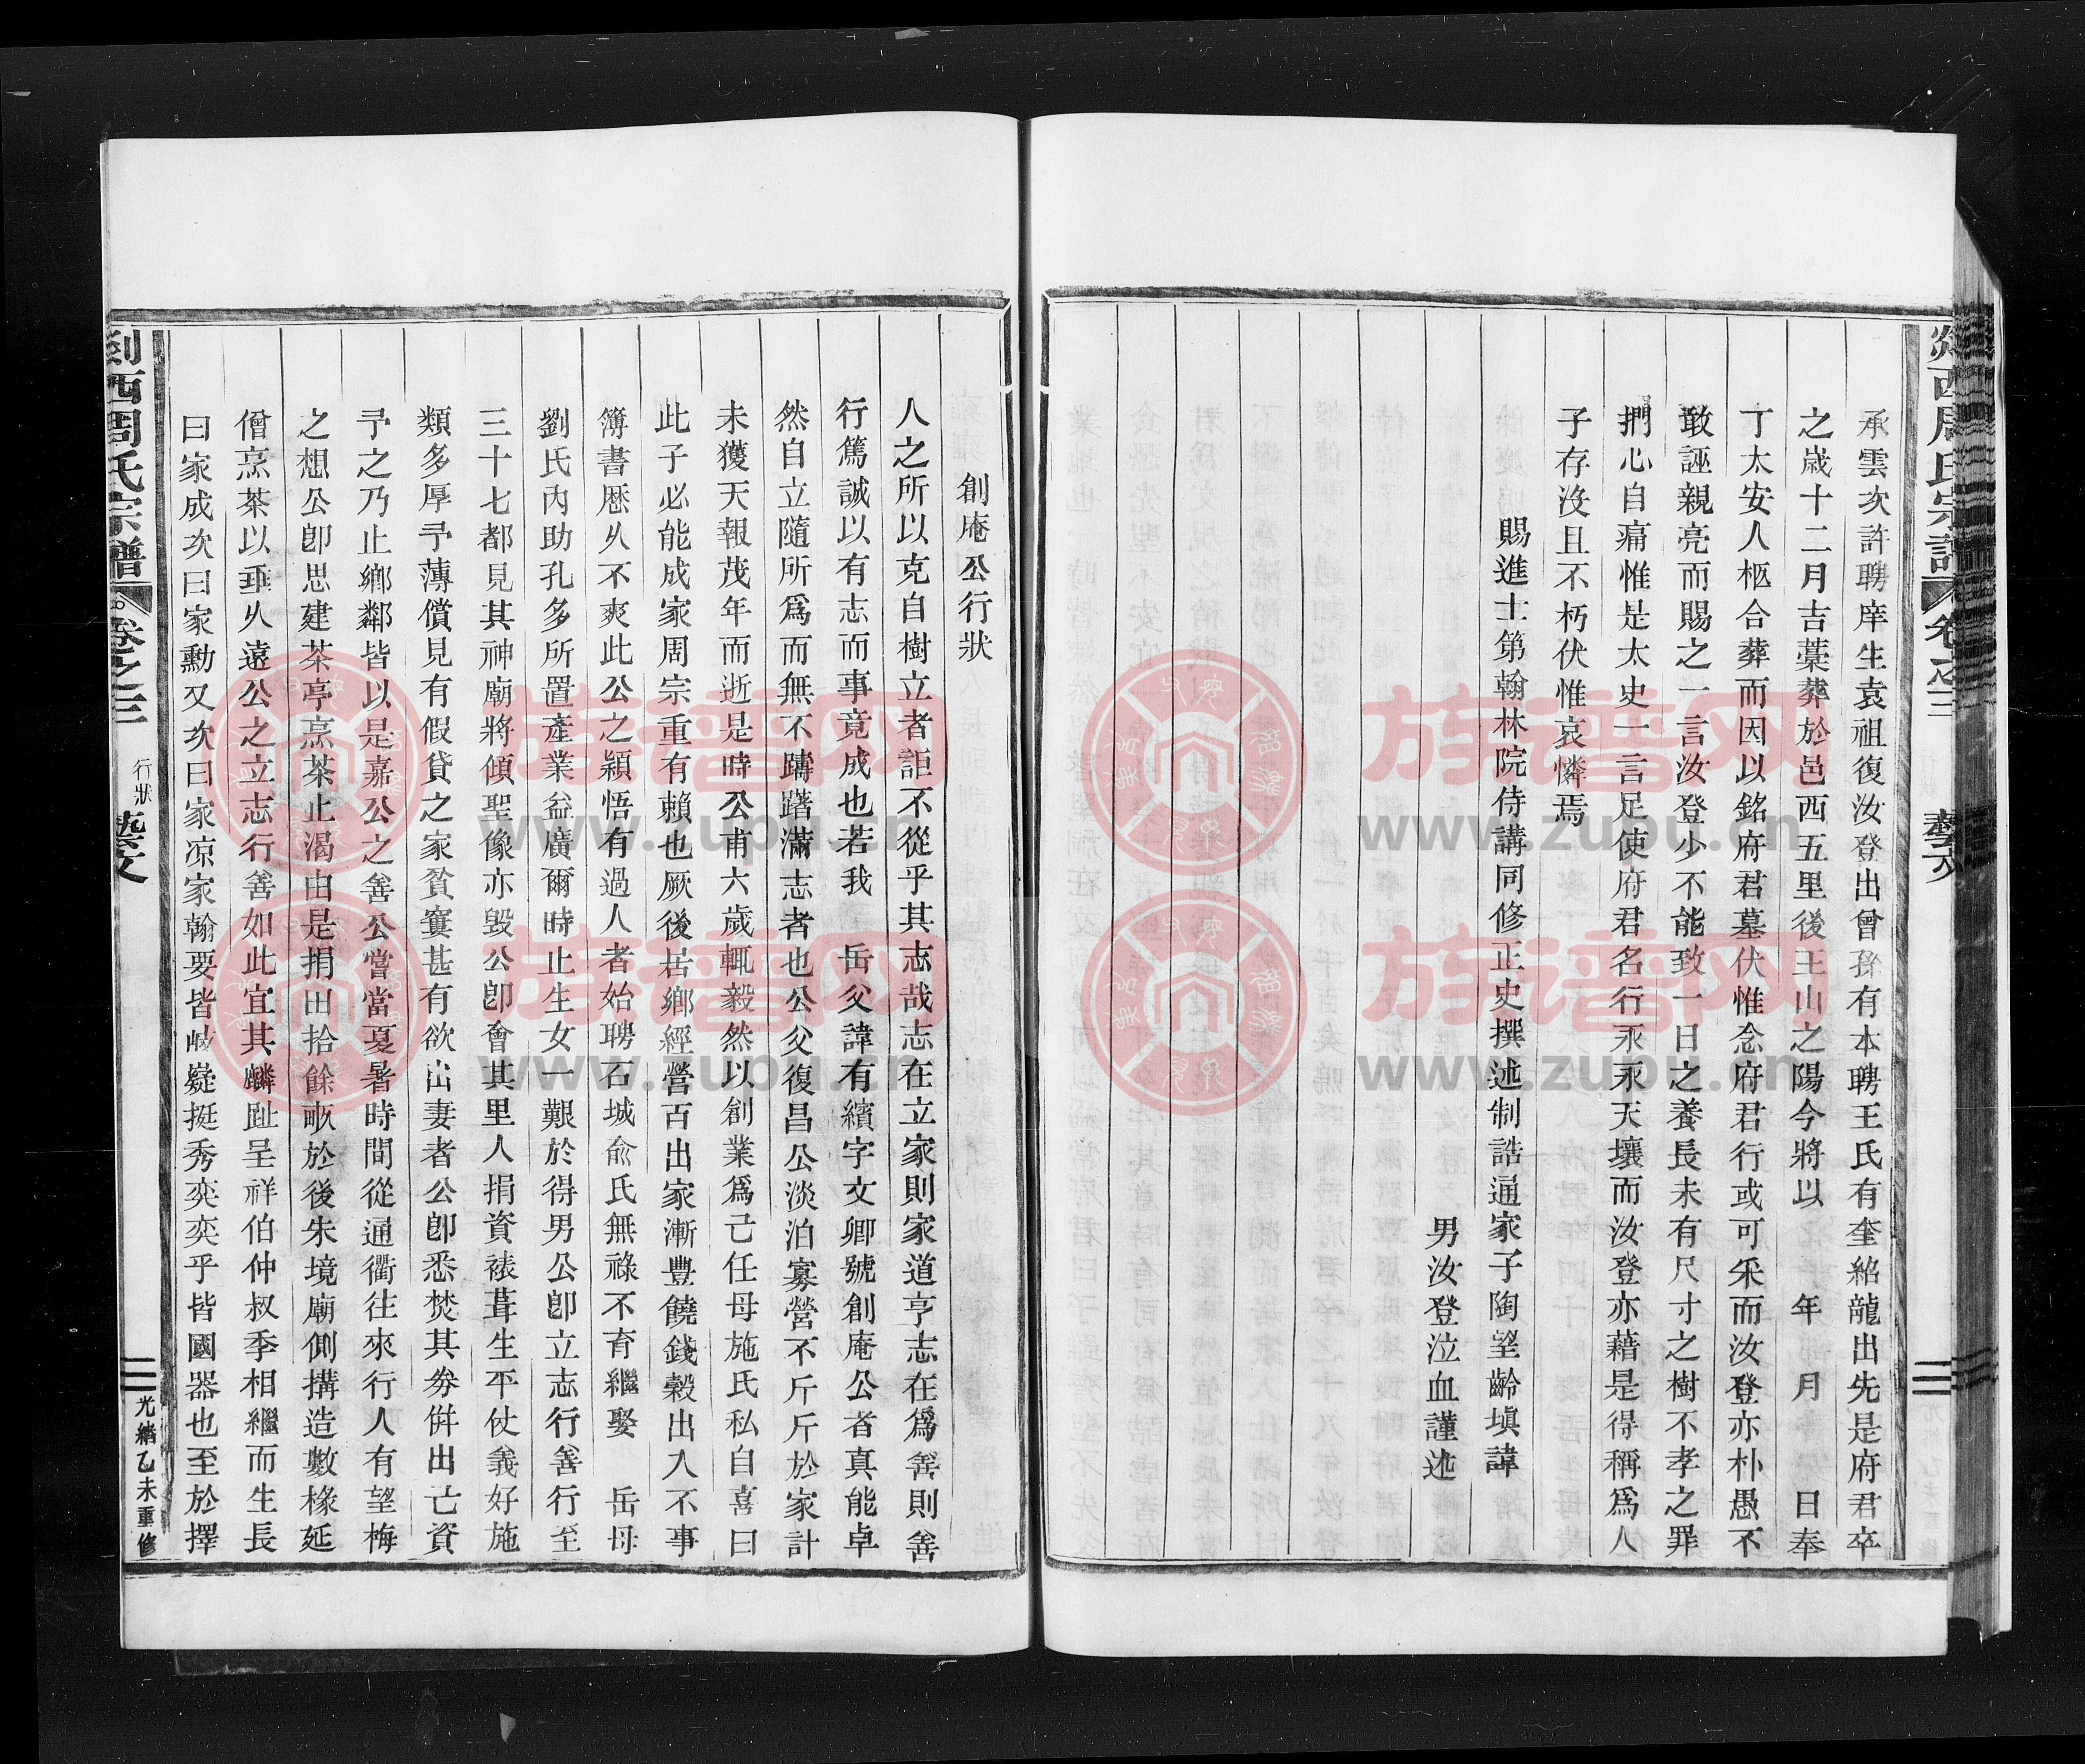 剡西周氏宗譜 卷之三 藝文
承雲次許聘庠生袁祖復汝登出曾孫有本聘王氏有奎紹龍出先是府君卒
之歲十二月吉藁葬於邑西五里後王山之陽今將以 年 月 日奉
丁太安人柩合葬而因以銘府君墓伏惟念府君行或可采而汝登亦朴愚不
敢誣親亮而賜之一言汝登少不能致一日之養長未有尺寸之樹不孝之罪
捫心自痛惟是太史一言足使府君名行永永天壤而汝登亦藉是得稱爲人
子存沒且不朽伏惟哀憐焉
賜進士第翰林院侍講同修正史撰述制誥通家子陶望齡填諱
男汝登泣血謹述
創庵公行狀
人之所以克自樹立者詎不從乎其志哉志在立家則家道亨志在爲善則善
行篤誠以有志而事竟成也若我 岳父諱有繽字文卿號創庵公者真能卓
然自立隨所爲而無不躊躇滿志者也公父復昌公淡泊寡營不斤斤於家計
未獲天報茂年而逝是時公甫六歲輒毅然以創業爲己任母施氏私自喜曰
此子必能成家周宗重有賴也厥後居鄉經營百出家漸豐饒錢穀出入不事
簿書歷久不爽此公之穎悟有過人者始聘石城俞氏無祿不育繼娶 岳母
劉氏內助孔多所置產業益廣爾時止生女一艱於得男公卽立志行善行至
三十七都見其神廟將傾聖像亦毀公卽會其里人捐資裱葺生平仗義好施
類多厚予薄償見有假貸之家貧窶甚有欲出妻者公卽悉焚其券併出亡資
予之乃止鄉鄰皆以是嘉公之善公嘗當夏暑時間從通衢往來行人有望梅
之想公卽思建茶亭烹茶止渴由是捐田拾餘畝於後朱境廟側搆造數椽延
僧烹茶以垂久遠公之立志行善如此宜其麟趾呈祥伯仲叔季相繼而生長
曰家成次曰家勳又次曰家凉家翰要皆岐嶷挺秀奕奕乎皆國器也至於擇
剡西周氏宗譜 卷之三 行狀 藝文 光緒乙未重修
族谱网
www.zupu.cn
族谱网
www.zupu.cn
族谱网
www.zupu.cn
族谱网
www.zupu.cn